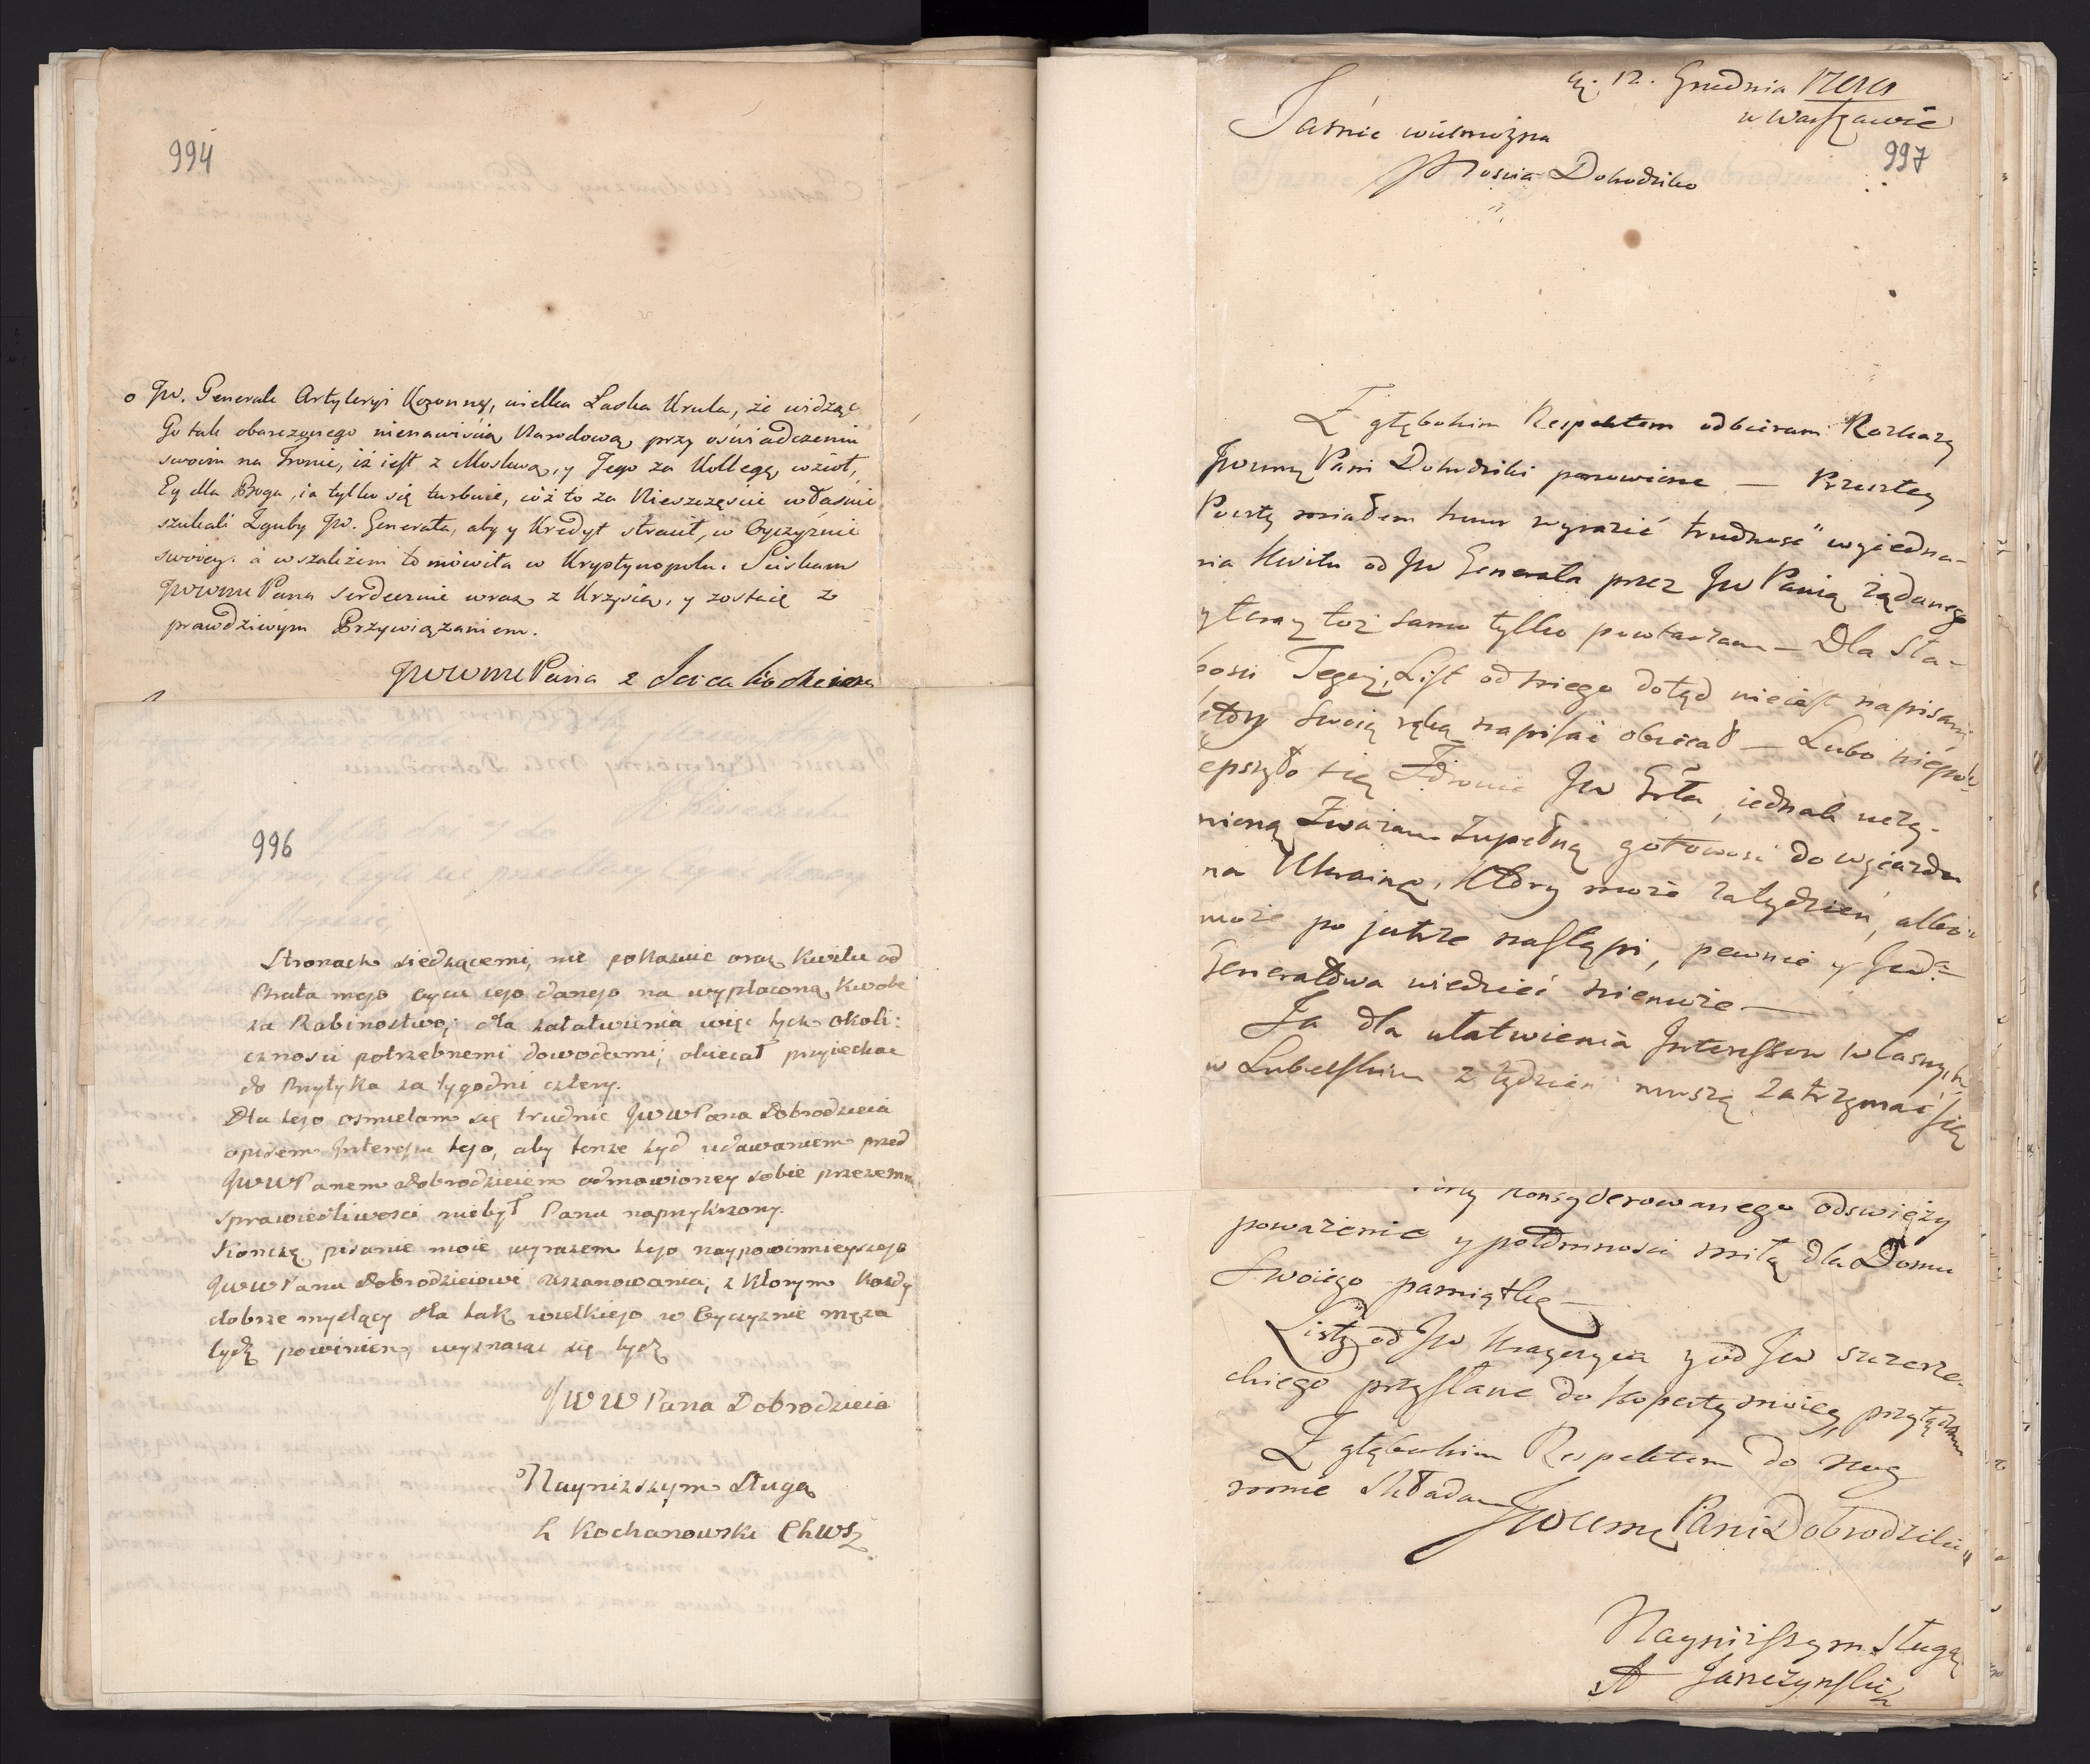 994
JW. Generale Artyleryi Koronney, wielka Łaska Krula, że widząc
Go tak obarczonego nienawiścią Narodową przy oświadczeniu
swoim na Tronie, iż iest z Moskwą, y Jego za Kollegę wzioł,
Ey dla Boga, ia tylko się turbuie, cóż to za Nieszczęscie własnie
szukali Zguby JW. Generała, aby y Kredyt stracił, w Oyczyznie
swoiey. a wszakżem to mówiła w Krystynopolu. Sciskam
JWWMPana serdecznie wraz z Krzysią, y zostaię z
prawdziwym Przywiązaniem.
JWWMPana z Serca
996
Stronach siedzącemi, nie pokazuie oraz Kwitu od
Brata mego Oycu iego danego na wypłaconą Kwotę
za Rabinostwo; dla załatwienia więc tych okoli:
cznosci potrzebnemi dowodami; obiecał przyiechać
do Przytyka za tygodni cztery.
Dla tego osmielam się trudnić JWWPana Dobrodzieia
opisem Interesu tego, aby tenże żyd udawaniem przed
JWWPanem Dobrodzieiem odmowioney sobie przezemnie
sprawiedliwosci niebył Panu naprzykrzony.
Konczę pisanie moie wyrazem tego naypowinnieyszego
JWWPanu Dobrodzieiowi uszanowania, z ktorym każdy
dobrze myslący dla tak wielkiego w Oyczyznie męża
bydz powinien, wyznaiąc się bydz
JWW Pana Dobrodzieia
Nayniższym Sługą
Kochanowski
12. Grudnia
w Warszawie
997
Jasnie wielmożna
Mościa Dobodziko
Z głębokim Respektem odbieram Rozkazy
JWWMę Pani Dobodziki ponowione — Przeszłey
Poczty miałem honor wyrazić trudnosć wyiedna-
nia Kwitu od JW Generała przez JW Panią żądanego
y teraz toż samo tylko powtarzam — Dla Sła-
bosci Tegoż, List od niego dotąd nieiest napisany
ktory swoią ręką napisać obiecał — Lubo niepole-
epszyło się Zdrowie JW Grła, iednak uczy-
nioną Zważam Zupełną gotowosc do wyiazdu
na Ukrainę, Który może za tydzien, albo
może po jutrze nastąpi, pewnie y sam
Generałowa wiedzieć niemoże —
Ja dla ułatwienia Interessow własnych
w Lubelskim z tydzien muszę zatrzymać się
konsyderowanego odswięży
poważenie y potomnosci miłą dla Domu
Swoiego pamiątkę —
Listy od JW Kraycżyca y od JW Szczerze-
ckiego przysłane do Koperty moiey, przyłączam
Z głębokim Respektem do Nog
mnie Składam
JWWMę Pani Dobrodziki
Nayniższym Sługą
A Janczynski